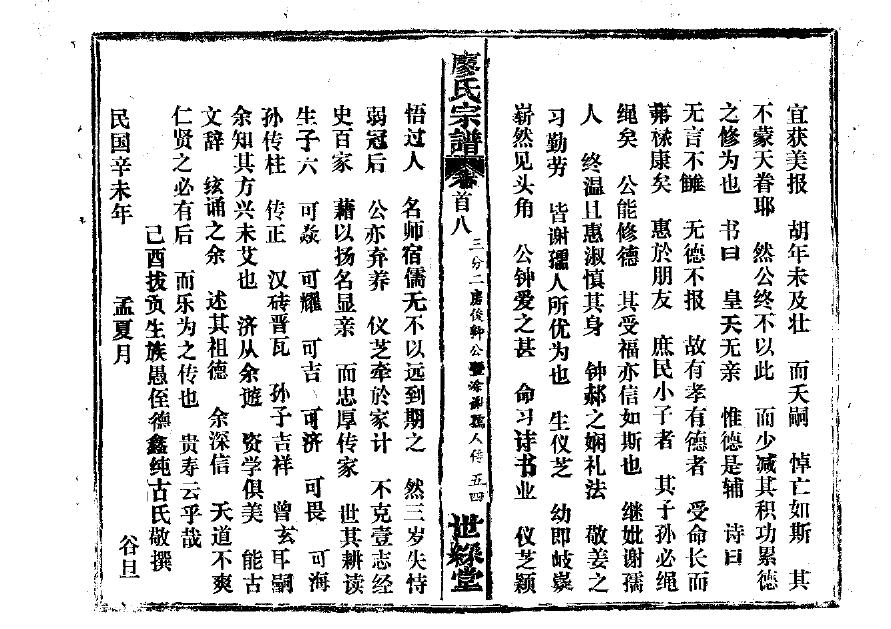 宜获美报 胡年未及壮 而夭嗣 悼亡如斯 其
不蒙天眷耶 然公终不以此 而少减其积功累德
之修为也 书曰 皇天无亲 惟德是辅 诗曰
无言不雠 无德不报 故有孝有德者 受命长而
茀禄康矣 惠於朋友 庶民小子者 其子孙必绳
绳矣 公能修德 其受福亦信如斯也 继妣谢孺
人 终温且惠淑慎其身 钟郝之娴礼法 敬姜之
习勤劳 皆谢孺人所优为也 生仪芝 幼即岐嶷
崭然见头角 公钟爱之甚 命习诗书业 仪芝颖
廖氏宗谱 卷首八 三分二房俊轩公暨涂谢孺人传 五四 世綵堂
悟过人 名师宿儒无不以远到期之 然三岁失恃
弱冠后 公亦弃养 仪芝牵於家计 不克壹志经
史百家 藉以扬名显亲 而忠厚传家 世其耕读
生子六 可焱 可耀 可吉 可济 可畏 可海
孙传柱 传正 汉砖晋瓦 孙子吉祥 曾玄耳嗣
余知其方兴未艾也 济从余遊 资学俱美 能古
文辞 弦诵之余 述其祖德 余深信 天道不爽
仁贤之必有后 而乐为之传也 贵寿云乎哉
己酉拔贡生族愚侄德鑫纯古氏敬撰
民国辛未年 孟夏月 谷旦